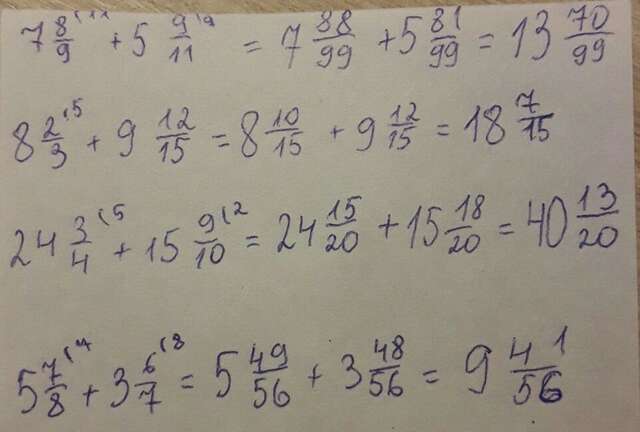 7 8/9 (11 + 5 9/11 (9 = 7 88/99 + 5 81/99 = 13 70/99
8 2/3 (5 + 9 12/15 = 8 10/15 + 9 12/15 = 18 7/15
24 3/4 (5 + 15 9/10 (2 = 24 15/20 + 15 18/20 = 40 13/20
5 7/8 (7 + 3 6/7 (8 = 5 49/56 + 3 48/56 = 9 41/56